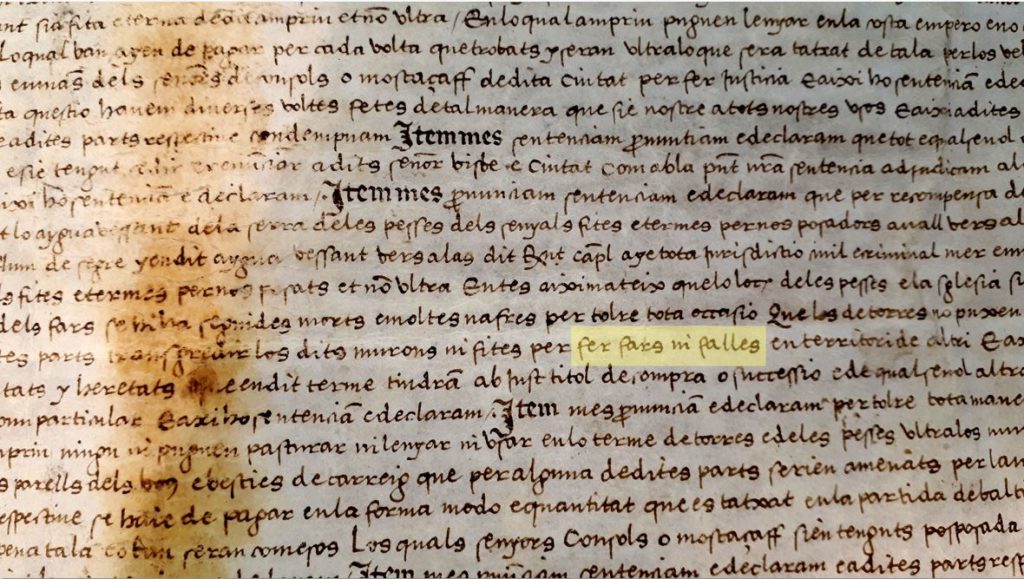 nt sia fita eterna de dit ampriu et nō vltra / En lo qual ampriu puguen lenyar en la costa empero en o
lo qual ban agen de pagar per cada volta que trobats y seran vltra lo que sera tatxat de tala per los ve
dels de Consols o mostaçaff de dita Ciutat per fer Justicia E aixi ho sentenciā e de
ta questio havem diverses voltes fetes de tal manera que sie nostre a tots nostres vsos E aixi a dites
e a dites parts respective condempnam Item mes sentenciam pronuntiam e declaram que tot e qualsevol
e sie tengut renunciar a dits señor bisbe e Ciutat Com ab la pnt nrã sentencia adjudicam al
ixi ho sentenciā e declaram / Item mes pronunciam sentenciam e declaram que per recompensa d
t lo ayguavessant de la serra de les pesses dels senyals fites e termes per nos posadors avall vers al
flum de segre y en dit aygua vessant vers alas dit Rnt capl age tota jurisdictio civil e criminal mer e
ls fites e termes per nos posats et nō vltra Entes aixi mateix que lo loch de les pesses e la sglesia si
dels fars se seguides morts e moltes nafres per tolre tota occasio Que los de torres no puxen
tes parts transgredir los dits murons ni fites per fer fars ni falles en territori de altri E ax
tats y heretats que en dit terme tindrā ab just titol de compra o successio e de qualsevol altre
om particular E axi ho sentenciā e declaram / Item mes pronunciā e declaram per tolre tota mane
mpriu ningu ni puguen pasturar ni lenyar ni vsar en lo terme de torres e de les pesses vltra los mur
s parells dels bous e besties de carreig que per alguna de dites parts serien amenats per lau
espective se haie de pagar en la forma modo e quantitat que es tatxat en la partida de balti
pena tala seran comesos Los quals senyors Consols o mostaçaff sien tenguts posposada
Item mes pronunciam sentenciam e declaram e a dites parts resp